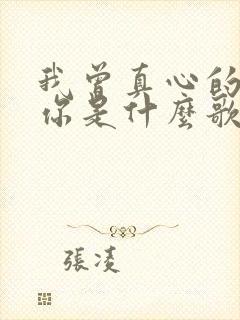 我曾真心的
你是什麼歌
張凌